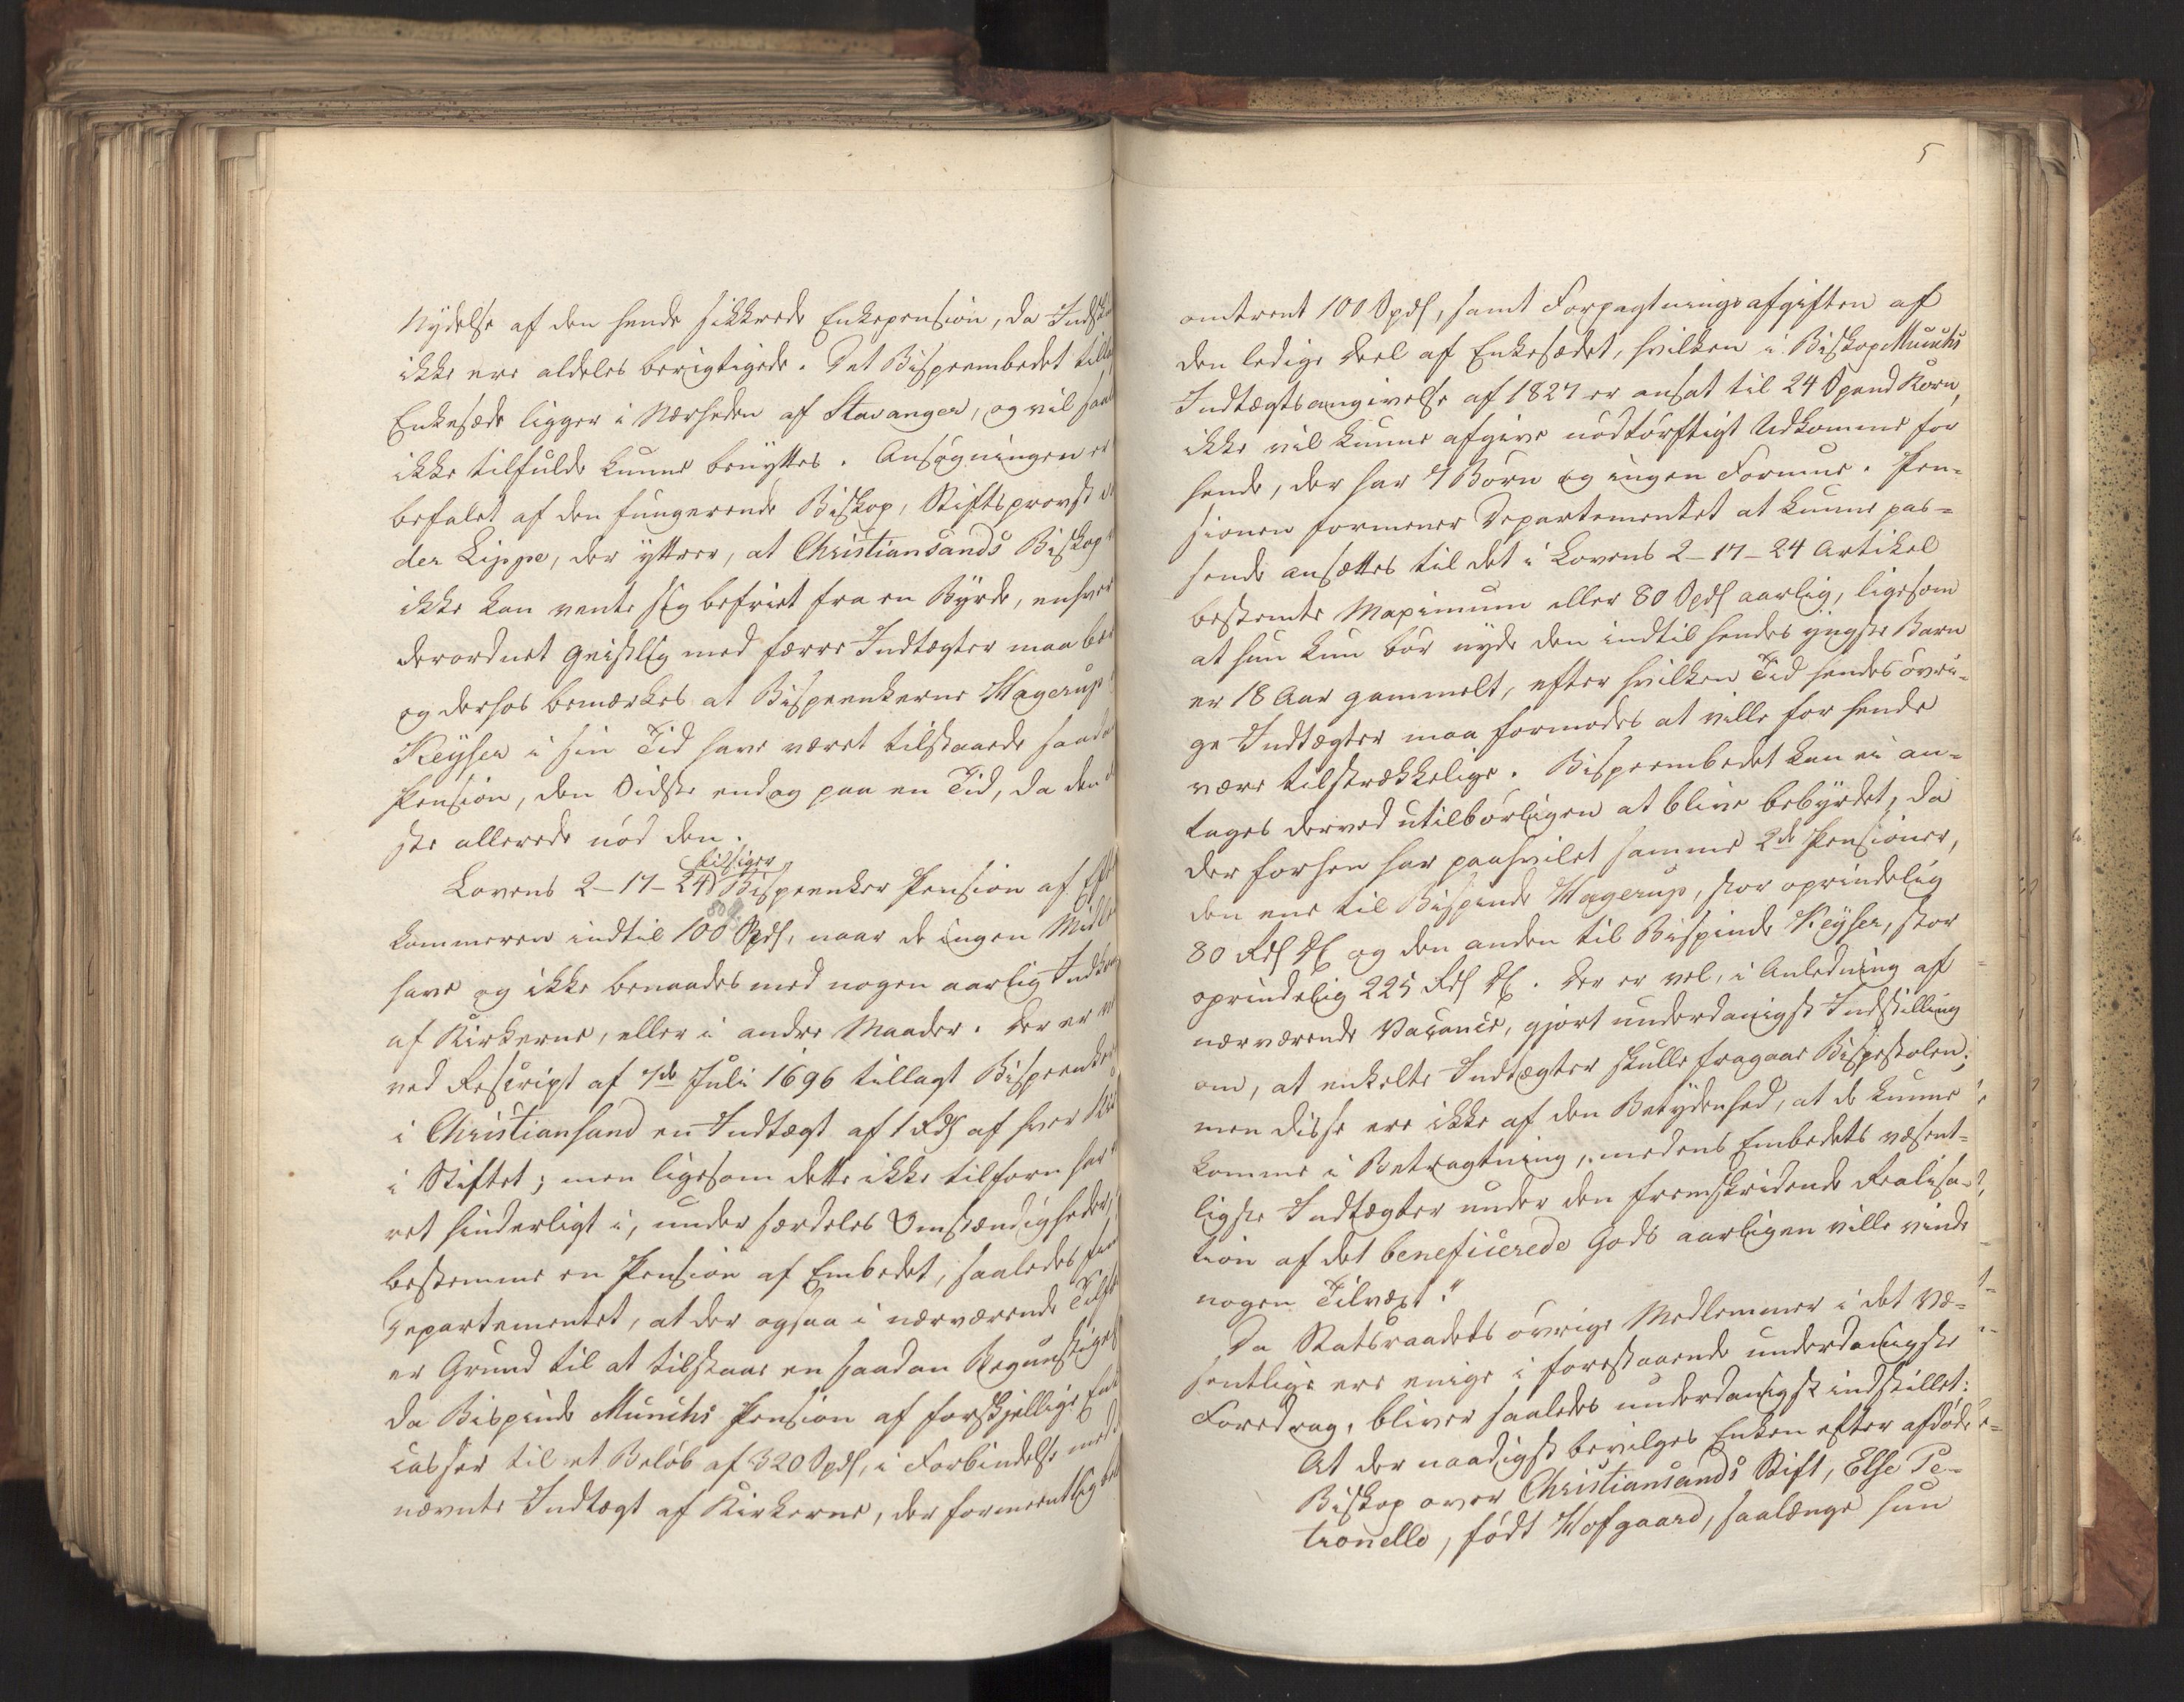 Nydelse af den hende sikkrede Enkepension, da Indsk
ikke ere aldeles berigtigede. Det Bispeembedet till
Enkesæde ligger i Nærheden af Stavanger, og vil saal
ikke tilfulde kunne benyttes. Ansøgningen er
befalet af den fungerende Biskop, Stiftsprovst v
der Lippe, der yttrer, at Christiansands Biskop
ikke kan vente sig befriet fra en Byrde, enhver
derordnet Geistlig med færre Indtægter maa bæ
og derhos bemærkes at Bispeenkerne Hagerup
Keyser i sin Tid have været tilstaaede saada
Pension, den Sidste endog paa en Tid, da den
ste allerede nød den.
Lovens 2-17-24 tilsiger Bispeenker Pension af Eft
kommeren indtil 100 Rdl, naar de ingen Midl
have og ikke benaades med nogen aarlig Indko
af Kirkerne, eller i andre Maader. Der er v
ved Rescript af 7de Juli 1696 tillagt Bispeenke
i Christiansand en Indtægt af 1 Rdl af hver Kir
i Stiftet; men ligesom dette ikke tilforn har
ret hinderligt i, under særdeles Omstændigheder
bestemme en Pension af Embedet, saaledes
Departementet, at der ogsaa i nærværende Tilf
er Grund til at tilstaae en saadan Begunstigel
da Bispinde Munchs Pension af forskjellige Enk
casser til et Beløb af 320 Spdl, i Forbindelse med
nævnte Indtægt af Kirkerne, der formeentlig
5
omtrent 100 Spdl, samt Forpagtningsafgiften af
den ledige Deel af Enkesædet, hvilken i Biskop Munchs
Indtægtsangivelse af 1827 er ansat til 24 Spand Korn,
ikke vil kunne afgive nødtørftigt Udkomme for
hende, der har 7 Børn og ingen Formue. Pen-
sionen formener Departementet at kunne pas-
sende ansættes til det i Lovens 2-17-24 Artikel
bestemte Maximum eller 80 Spdl aarlig, ligesom
at hun kun bør nyde den indtil hendes yngste Barn
er 18 Aar gammelt, efter hvilken Tid hendes øvri-
ge Indtægter maa formodes at ville for hende
være tilstrækkelige. Bispeembedet kan ei an-
tages derved utilbørligen at blive bebyrdet, da
der forhen har paahvilet samme 2de Pensioner,
den ene til Bispinde Hagerup, stor oprindelig
80 Rdl DC og den anden til Bispinde Keyser, stor
oprindelig 225 Rdl DC. Der er vel, i Anledning af
nærværende Vacance, gjort underdanigst Indstilling
om, at enkelte Indtægter skulle fragaae Bispestolen;
men disse ere ikke af den Betydenhed, at de kunne
komme i Betragtning, medens Embedets væsent-
ligste Indtægter under den fremskridende Realisa-
tion af det beneficerede Gods aarligen ville vinde
nogen Tilvæxt."
Da Statsraadets øvrige Medlemmer i det Væ-
sentlige ere enige i forestaaende underdanigste
Foredrag, bliver saaledes underdanigst indstillet:
At der naadigst bevilges Enken efter afdøde
Biskop over Christiansands Stift, Else Pe-
tronelle, født Hofgaard, saalænge hun